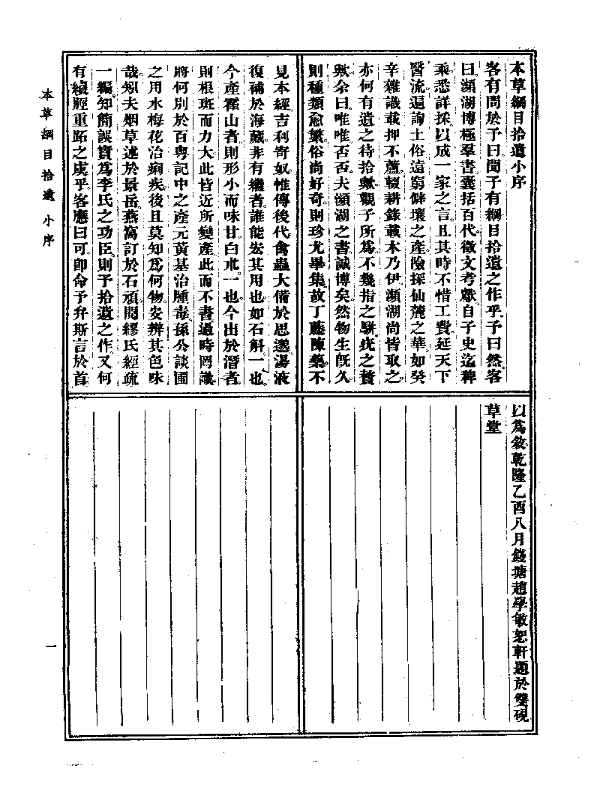 本草綱目拾遺小序
客有問於予曰聞子有綱目拾遺之作乎予曰然客
曰瀕湖博極羣書囊括百代徵文考獻自子史迄稗
乘悉詳採以成一家之言且其時不惜工費延天下
醫流遐詢土俗遠窮僻壤之產險探仙麓之華如癸
辛雜識載押不蘆輟耕錄載木乃伊瀕湖尚皆取之
亦何有遺之待拾歟觀子所爲不幾指之駢疣之贅
歟余曰唯唯否否夫瀕湖之書誠博矣然物生旣久
則種類愈繁俗尚好奇則珍尤畢集故丁藤陳藥不
見本經吉利寄奴惟傳後代禽蟲大備於思邈湯液
復補於海藏非有繼者誰能宏其用也如石斛一也
今產霍山者則形小而味甘白朮一也今出於潛者
則根斑而力大此皆近所變產此而不書過時罔識
將何別於百粤記中之產元黃基治腫毒孫公談圃
之用水梅花治痢疾後且莫知爲何物安辨其色味
哉矧夫烟草述於景岳燕窩訂於石頑閱繆氏經疏
一編知簡誤實爲李氏之功臣則予拾遺之作又何
有纍脛重跖之虞乎客應曰可卽命予弁斯言於首
以爲敘乾隆乙酉八月錢塘趙學敏恕軒題於雙硯
草堂
本草綱目拾遺 小序
一